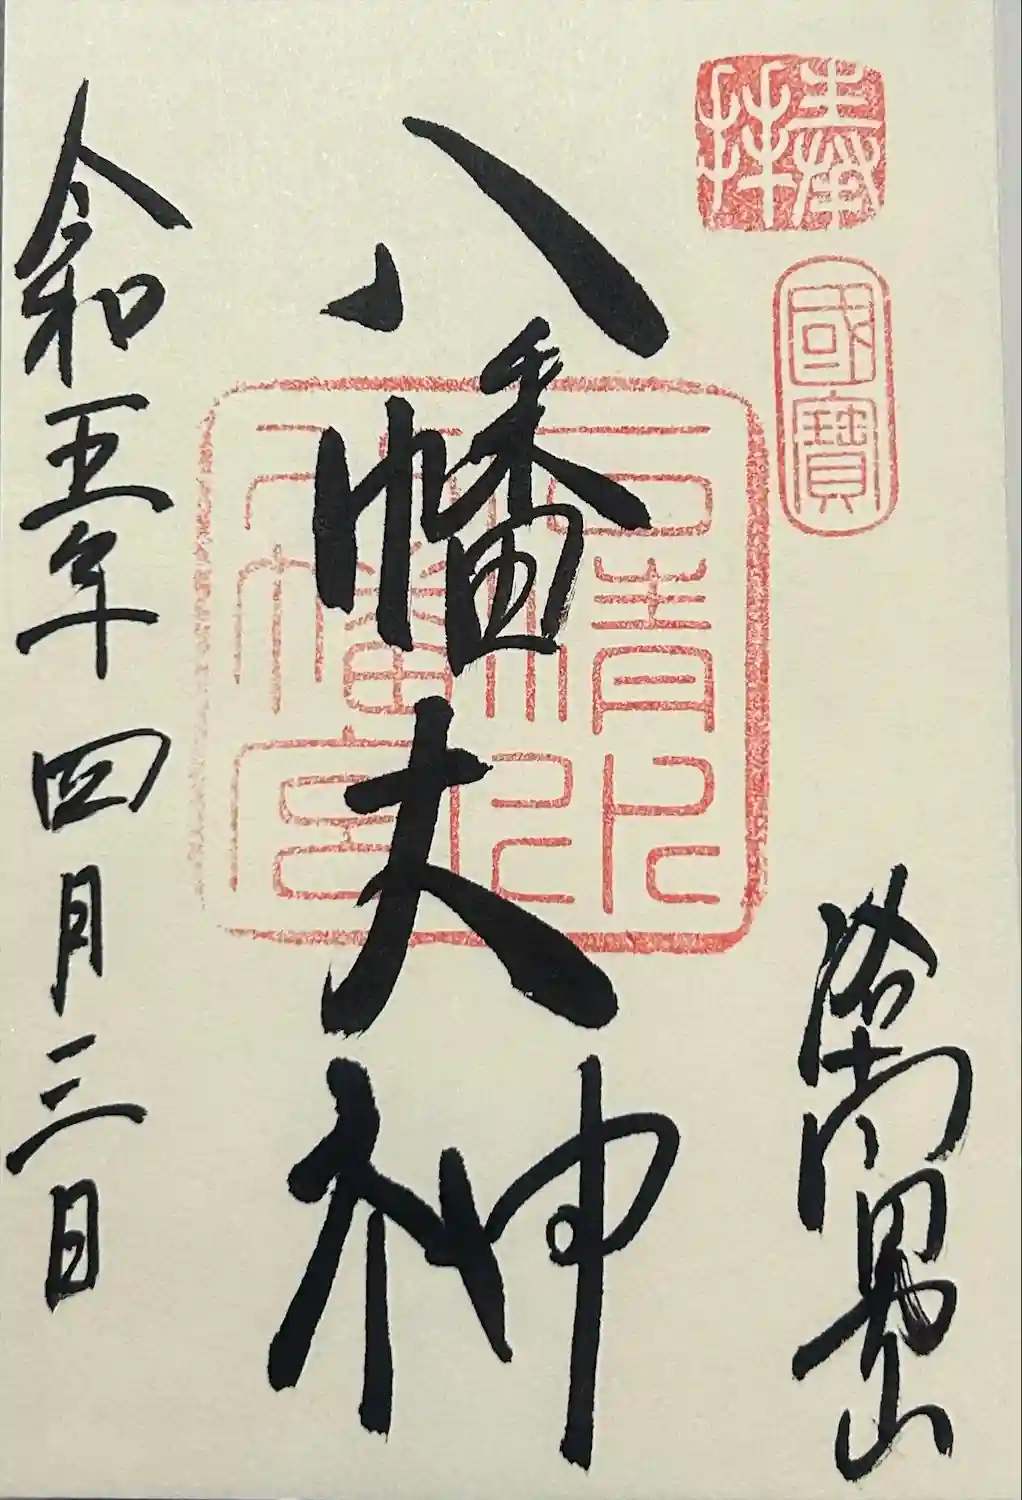 奉拜
國寶
洛南男山
八幡大神
石清水八幡宮
令和五年四月三日